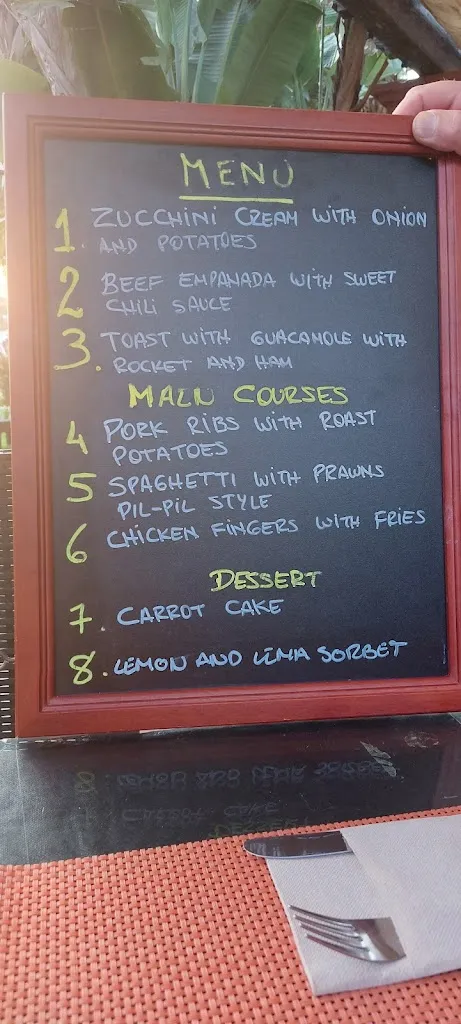 MENU
1. ZUCCHINI CREAM WITH ONION
AND POTATOES
2 BEEF EMPANADA WITH SWEET
CHILI SAUCE
3. TOAST WITH GUACAMOLE WITH
ROCKET AND HAM
MAIN COURSES
4 PORK RIBS WITH ROAST
POTATOES
5 SPAGHETTI WITH PRAWNS
PIL-PIL STYLE
6 CHICKEN FINGERS WITH FRIES
DESSERT
7. CARROT CAKE
8. LEMON AND LIMA SORBET